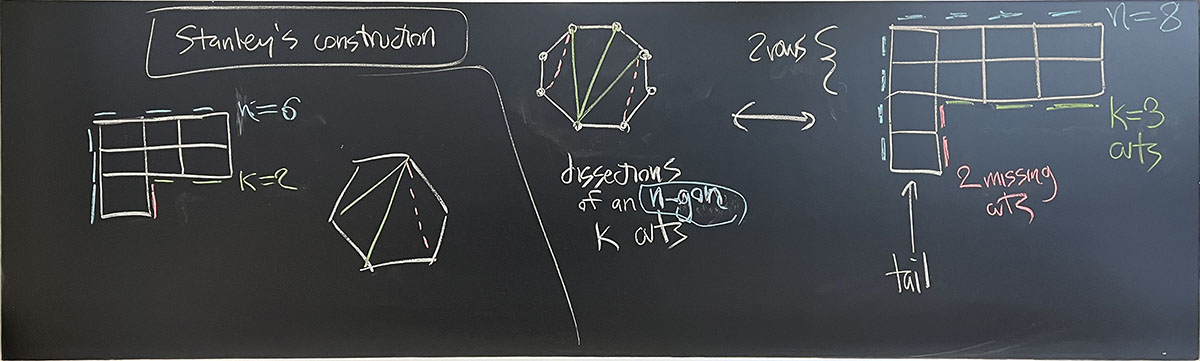 Stanley's construction
n=6
k=2
dissections
of an n-gon
k cuts
2 rows
n=8
k=3
cuts
2 missing
cuts
tail